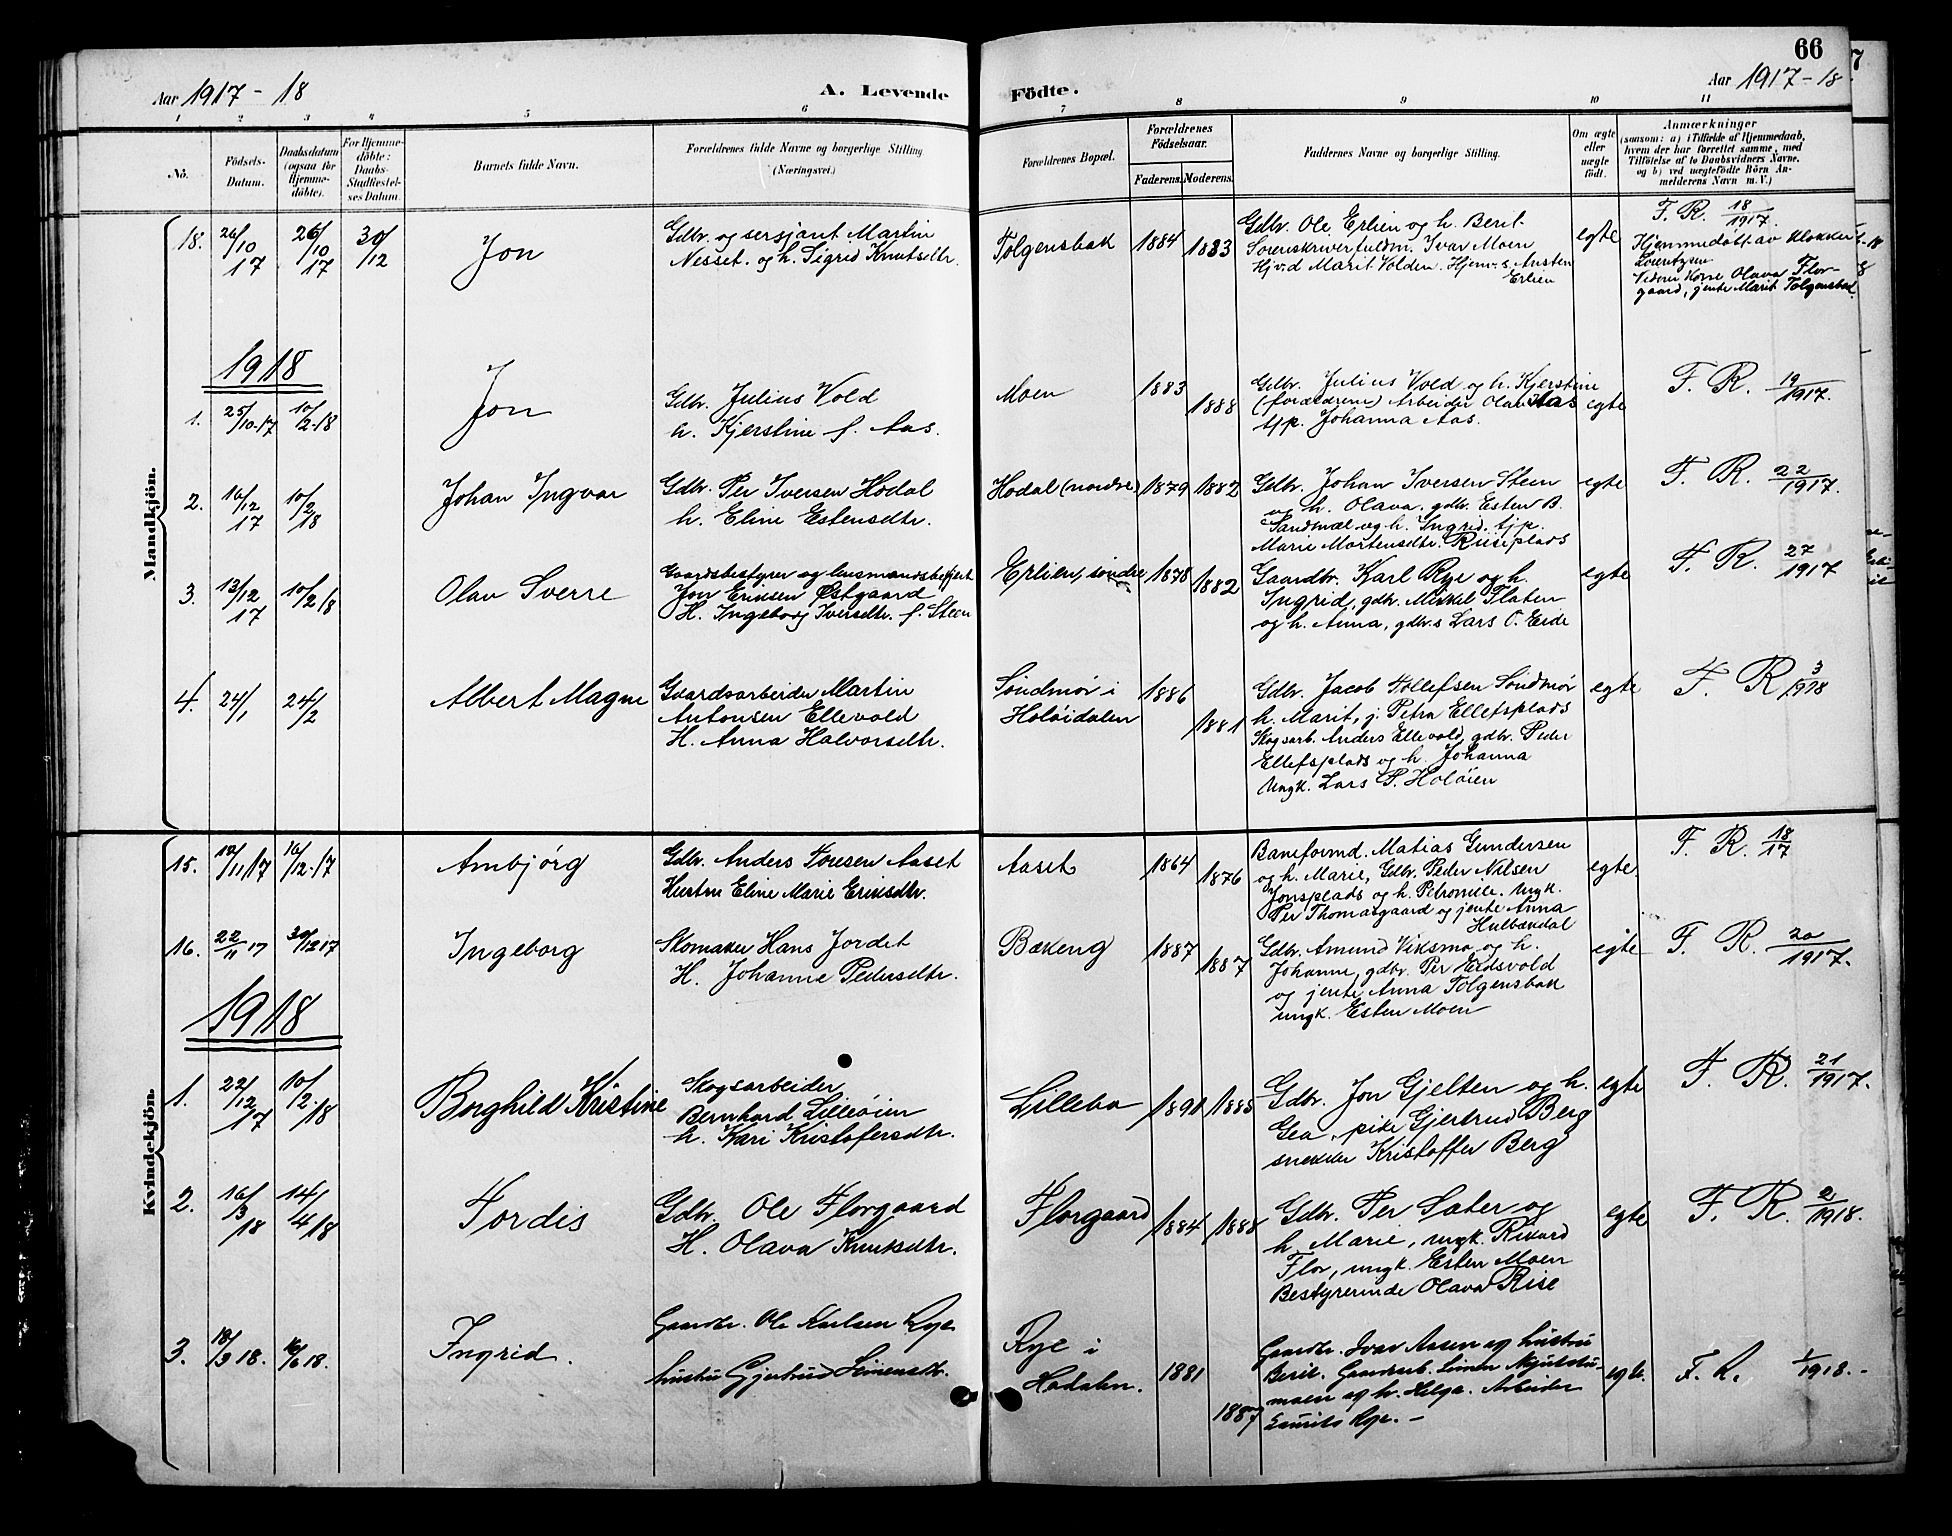 66
7
Aar 1917 - 18
A. Levende
Födte.
Aar 1917 - 18
1 2 3 4 5 6 7 8 9 10 11
No.
Födsels-
Datum.
Daabsdatum
(ogsaa for
Hjemme-
döbte).
For Hjemme-
döbte:
Daabs-
Stadfæstel-
ses Datum.
Barnets fulde Navn.
Forældrenes fulde Navne og borgerlige Stilling
(Næringsvei.)
Forældrenes Bopæl.
Forældrenes
Födselsaar.
Faderens.
Moderens.
Faddernes Navne og borgerlige Stilling.
Om ægte
eller
uægte
födt.
Anmærkninger
(saasom: a) i Tilfælde af Hjemmedaab,
hvem der har forrettet samme, med
Tilföielse af to Daabsvidners Navne,
og b) ved uægtefödte Börn An-
melderens Navn m. V.)
Mandkjön.
18. 26/10 17 26/10 17 30/12 Jon
Gdbr. og sersjant Martin
Nesset. og h. Sigrid Knutsdtr.
Tolgensbak 1884 1883
Gdbr. Ole Erlien og h. Berit
Sorenskriverfuldm. Ivar Moen
Hjvd Marit Volden. Hjemv. s. Austen
Erlien
egte
F. R. 18/1917.
Hjemmedöbt av klokker
Lorentzen
Vidner Kone Olava Flor-
gaard, jente Marit Tolgensbak
1918
1. 25/10-17 10/2-18 Jon
Gdbr. Julius Vold
h. Kjerstine f. Aas.
Moen 1883 1888
Gdbr. Julius Vold og h. Kjerstine
(forældrene) Arbeider Olav Aas
tjp. Johanna Aas.
egte
F. R. 19/1917.
2. 16/12 17 10/2 18 Johan Ingvar
Gdbr. Per Iversen Hodal
h. Eline Estensdtr.
Hodal (nordre) 1879 1882
Gdbr. Johan Iversen Steen
og h. Olava. gdbr. Esten B.
Sandmæl og h. Ingrid. tjp.
Marie Mortensdtr. Riiseplads
egte
F. R. 22/1917.
3. 13/12 17 10/2 18 Olav Sverre
Gaardsbestyrer og lensmandsbetjent
Jon Eriksen Östgaard
H. Ingeborg Iversdtr. f. Steen
Erlien, söndre 1878 1882
Gaardbr. Karl Rye og h.
Ingrid, gdbr. Mikkel Flaten
og h. Anna, gdbr.s Lars O. Eide
egte
F. R. 27/1917
4. 24/1 24/2 Albert Magne
Gaardsarbeider Martin
Antonsen Ellevold
H. Anna Halvorsdtr.
Söndmör i
Holöidalen
1886 1881
Gdbr. Jacob Tollefsen Söndmör
h. Marit, j. Petra Ellefsplads
Skogsarb. Anders Ellevold, gdbr. Peder
Ellefsplads og h. Johanna
Ungk. Lars P. Holöien
egte
F. R. 3/1918
Kvindekjön.
15. 10/11 17 16/12-17 Ambjörg
Gdbr. Anders Toresen Aaset
Hustru Eline Marie Eriksdtr.
Aaset 1864 1876
Baneformd. Matias Gundersen
og h. Marie, Gdbr. Peder Nilsen
Jonsplads og h. Petronille. Ungk.
Per Thomasgaard og jente Anna
Hulbækdal
egte.
F. R. 18/17
16. 22/11 17 30/12 17 Ingeborg
Skomaker Hans Jordet
H. Johanne Pedersdtr.
Bækeng 1887 1887
Gdbr. Amund Viksmo og h.
Johanne, gdbr. Per Eidsvold
og jente Anna Tolgensbak
ungk. Esten Moen
egte
F. R. 20/1917.
1918
1. 22/12 17 10/2-18 Borghild Kristine
Skogsarbeider
Bernhard Lilleöien
h. Kari Kristofersdtr.
Lillebo 1890 1885
Gdbr. Jon Gjelten og h.
Gea, pike Gjertrud Berg
snekker Kristoffer Berg
egte
F. R. 21/1917.
2. 16/3 18 14/4 18 Tordis
Gdbr. Ole Florgaard
H. Olava Knutsdtr.
Florgaard 1884 1888
Gdbr. Per Sæter og
h Marie, ungk. Rikard
Flor, ungk. Esten Moen
Bestyrerinde Olava Rise
egte
F. R. 2/1918.
3. 18/3 18. 16/6 18. Ingrid.
Gaardbr. Ole Karlsen Rye
hustru Gjertrud Simensdtr.
Rye i
Hodalen.
1881 1887
Gaardbr. Ivar Aasen og hustru
Berit. Gaardarb. Simen Njutstu-
moen og h. Helga. Arbeider
Laurits Rye. –
egte.
F. R. 1/1918. –